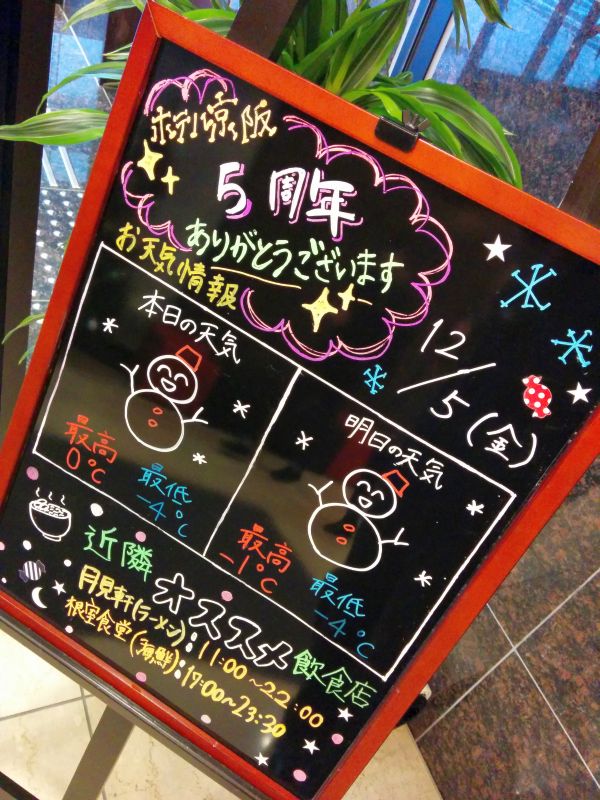 ホテル京阪
5周年
ありがとうございます
お天気情報
12/5(金)
本日の天気
最高
0℃
最低
-4℃
明日の天気
最高
-1℃
最低
-4℃
近隣オススメ飲食店
月見軒(ラーメン):11:00~22:00
根室食堂(海鮮):17:00~23:30